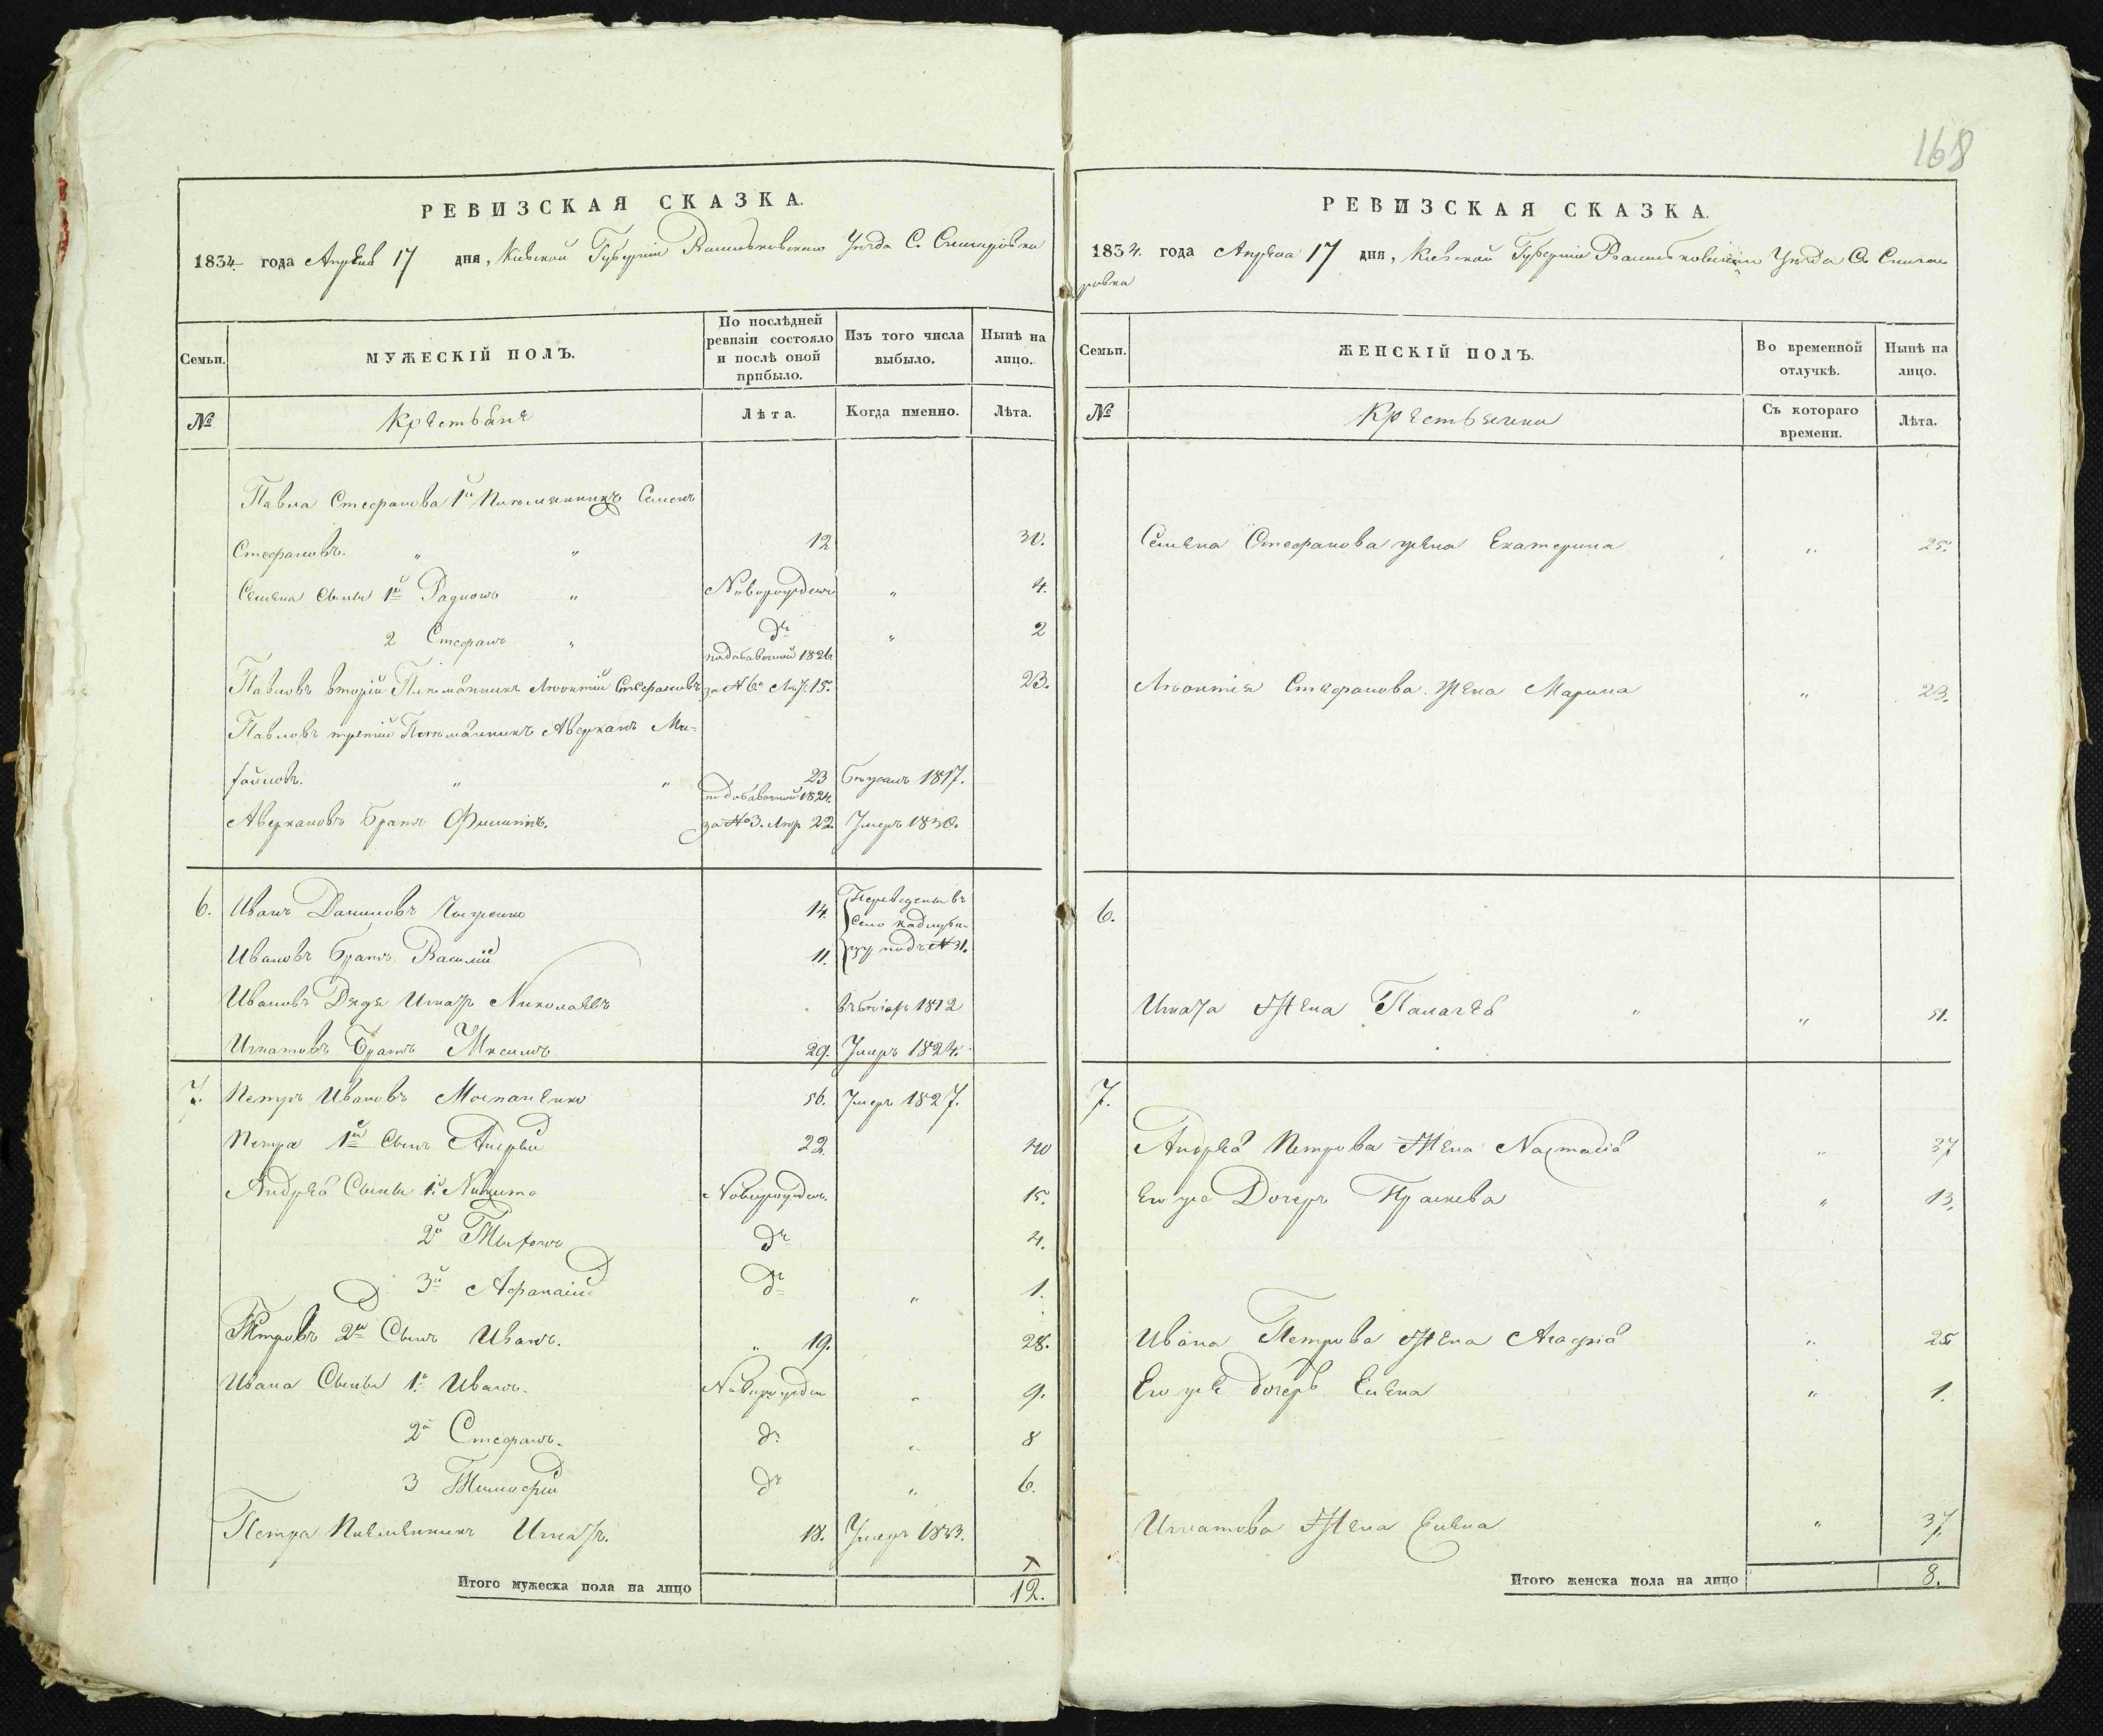 168
РЕВИЗСКАЯ СКАЗКА.
1834. года Апреля 17 дня, Кіевской Губерніи Васильковскаго Уезда С.
Семьи.
МУЖЕСКІЙ ПОЛЪ.
По послѣдней ревизіи состояло и послѣ оной прибыло.
Изъ того числа выбыло.
Нынѣ на лицо.
№
Крестьяне
Лѣта.
Когда именно.
Лѣта.
Павла Стефанова 1й Племянникъ Семенъ
Стефановъ. " " 12 30.
Семена Сыны 1й Радионъ " Новорожден " 4.
2 Стефанъ " дто " 2
подобавочной 1826
Павловъ вторій Племянникъ Леонтій Стефановъ за № 6. 15. 23.
Павловъ третій Племянникъ Аверкамъ Ми-
хайловъ. " " 23 1817.
подобавочной 1824.
Аверкамовъ Братъ Филипъ. за № 3. 22. Умеръ 1830.
6. Иванъ Даниловъ 14. Переведены въ
село
Ивановъ Братъ Василій 11. подъ № 31.
Ивановъ Дядя Игнатъ Николаевъ 1812
Игнатовъ Братъ Максимъ 29. Умеръ 1824.
7. Петръ Ивановъ Моспаненко 56. Умеръ 1827.
Петра 1й Сынъ Андрей 22. 40
Андрея Сыны 1й Никита Новорожден. 15.
2й Тихонъ дто 4.
3й Афанасій дто " 1.
Петровъ 2й Сынъ Иванъ. " 19. 28.
Ивана Сыны 1й Иванъ. Новорожден " 9.
2й Стефанъ. дто " 8
3 Тимофій дто " 6.
Петра Племянникъ Игнатъ. 18. Умеръ 1833.
Итого мужеска пола на лицо 12.
РЕВИЗСКАЯ СКАЗКА.
1834. года Апреля 17 дня, Кіевской Губерніи Васильковскаго Уезда С.
ровка
Семьи.
ЖЕНСКІЙ ПОЛЪ.
Во временной отлучкѣ.
Нынѣ на лицо.
№
Крестьянки
Съ котораго времени.
Лѣта.
Семена Стефанова жена Екатерина " 25.
Леонтія Стефанова жена Марина " 23.
6.
Игната Жена Палагея " " 51.
7.
Андрея Петрова Жена Настасія " 37
Его же Дочеръ Праскева " 13.
Ивана Петрова Жена Агафія " 25
Его же дочеръ Елена " 1.
Игнатова Жена Елена " 37
Итого женска пола на лицо 8.